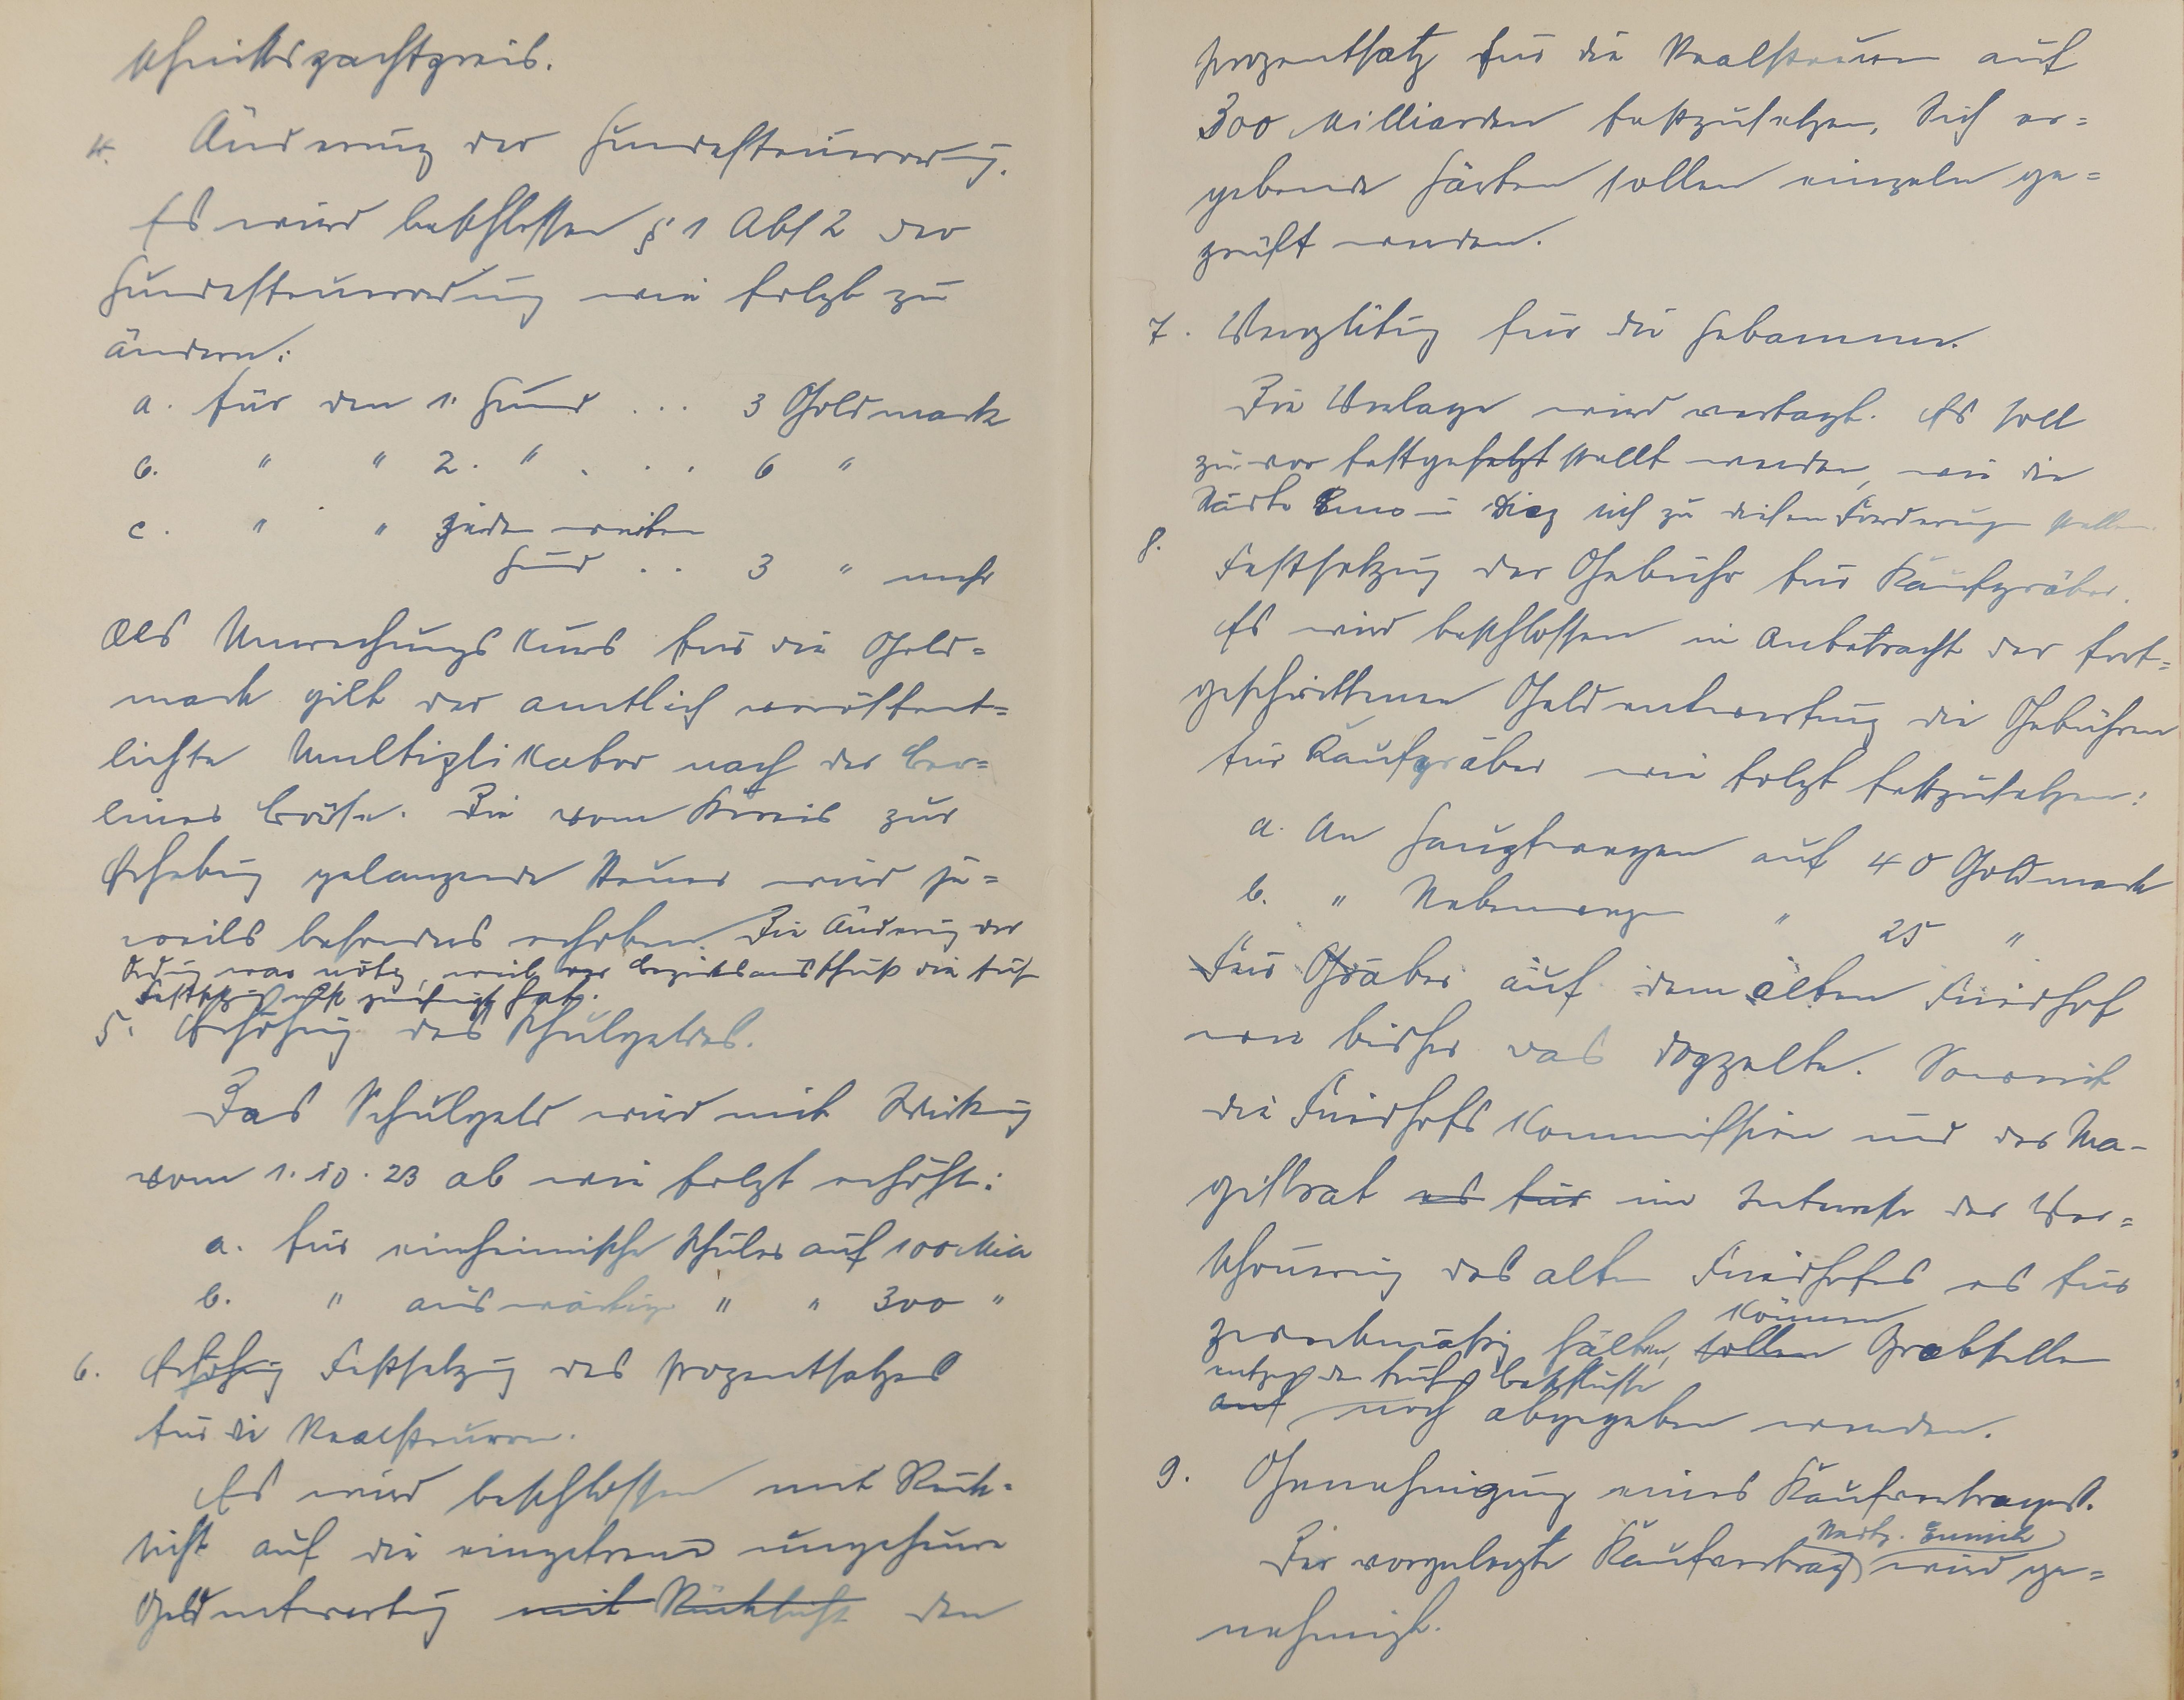 schnittspachtpreis.
4. Änderung der Hundesteuerordnung.
Es wird beschlossen § 1 Abs 2 der
Hundesteuerordnung wie folgt zu
ändern:
a. für den 1. Hund ... 3 Goldmark
b. " " 2. " . . . 6 "
c. " " jeden weiteren
Hund .. 3 " mehr
Als Umrechnungskurs für die Gold=
mark gilt der amtlich veröffent=
lichte Multiplikator nach der Ber=
liner Börse. Die vom Kreis zur
Erhebung gelangende Steuer wird je=
weils besonders erhoben. Die Änderung der
Ordnung war nötig, weil der Bezirksausschuß die
Festsetzung nicht genehmigt hat.
5. Erhöhung des Schulgeldes.
Das Schulgeld wird mit Wirkung
vom 1. 10. 23 ab wie folgt erhöht:
a. für einheimische Schüler auf 100 Mia
b. " auswärtige " " 300 "
6. Erhöhung Festsetzung des Prozentsatzes
für die Realsteuern.
Es wird beschlossen mit Rück-
sicht auf die eingetretene ungeheure
Geldentwertung mit Rücksicht den
Prozentsatz für die Realsteuern auf
300 Milliarden festzusetzen. Sich er=
gebende Härten sollen einzeln ge=
prüft werden.
7. Vergütung für die Hebamme.
Die Vorlage wird vertagt. Es soll
zuvor festgesetzt stellt werden, wie die
Städte Ems u Diez sich zu diesen Forderungen stellen.
8. Festsetzung der Gebühr für Kaufgräber.
Es wird beschlossen in Anbetracht der fort=
geschrittenen Geldentwertung die Gebühren
für Kaufgräber wie folgt festzusetzen:
a. An Hauptwegen auf 40 Goldmark
b. " Nebenwegen " 25 "
Für Gräber auf dem alten Friedhof
wie bisher das doppelte. Soweit
die Friedhofs Kommission und der Ma-
gistrat es für im Interesse der Ver=
schönerung des alten Friedhofes es für
zweckmäßig halten, sollen können Grabstellen
entgegen den früheren Beschlüssen
auf noch abgegeben werden.
9. Genehmigung eines Kaufvertrages.
Der vorgelegte Kaufvertrag wird ge=
nehmigt.